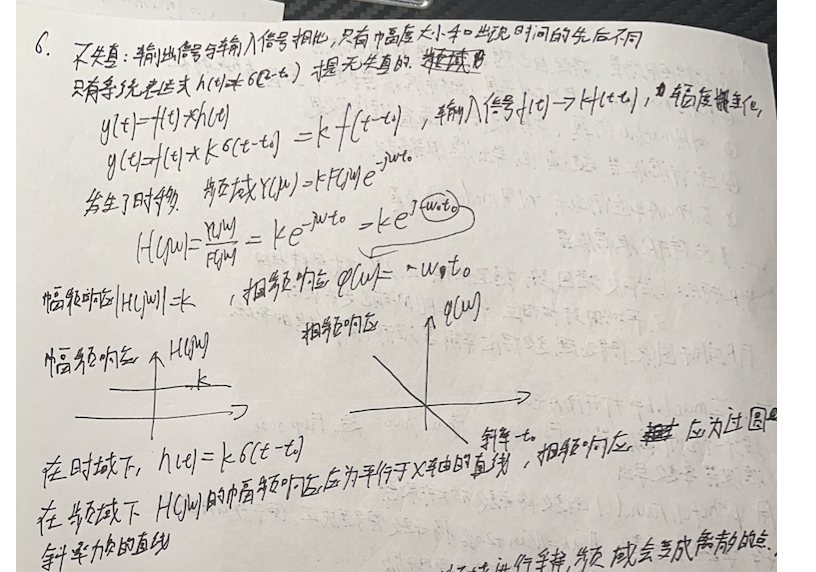 6. 不失真：输出信号与输入信号相比，只有幅度大小和出现时间的先后不同
只有系统表达式 h(t)=kδ(t-t₀) 才是无失真的.
y(t)=f(t)*h(t)
y(t)=f(t)*kδ(t-t₀)=kf(t-t₀)，输入信号f(t)→kf(t-t₀)，幅度变化，
发生了时移. 频域Y(jω)=kF(jω)e^{-jωt₀}
H(jω)=Y(jω)/F(jω)=ke^{-jωt₀}=ke^{j(-ω₀t₀)}
幅频响应|H(jω)|=k，相频响应φ(ω)=-ω₀t₀
幅频响应 H(jω) k
相频响应 φ(ω)
斜率-t₀
在时域下，h(t)=kδ(t-t₀)
在频域下 H(jω)的幅频响应应为平行于X轴的直线，相频响应 应为过圆
斜率为负的直线
进行 频域会变成离散的点.